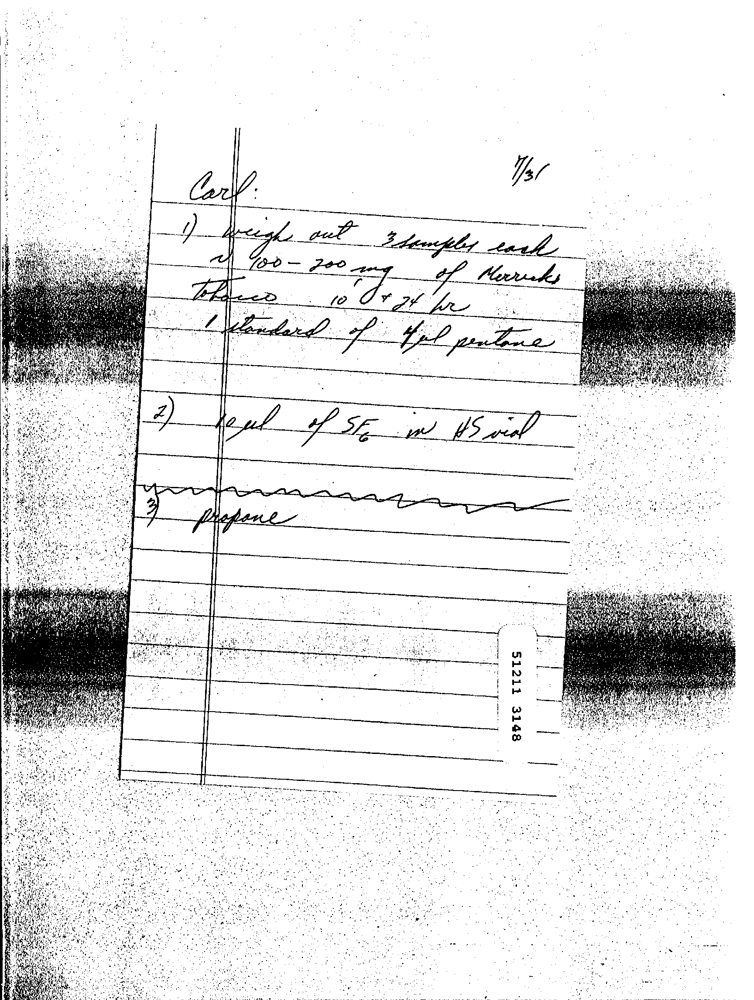 7/31
Carl:
1) weigh out 3 samples each
~ 100-200 mg of Merrick's
tobacco 10' + 24 hr
1 standard of 4µl pentane
2) 10µl of SF6 in HS vial
3) propane
51211 3148